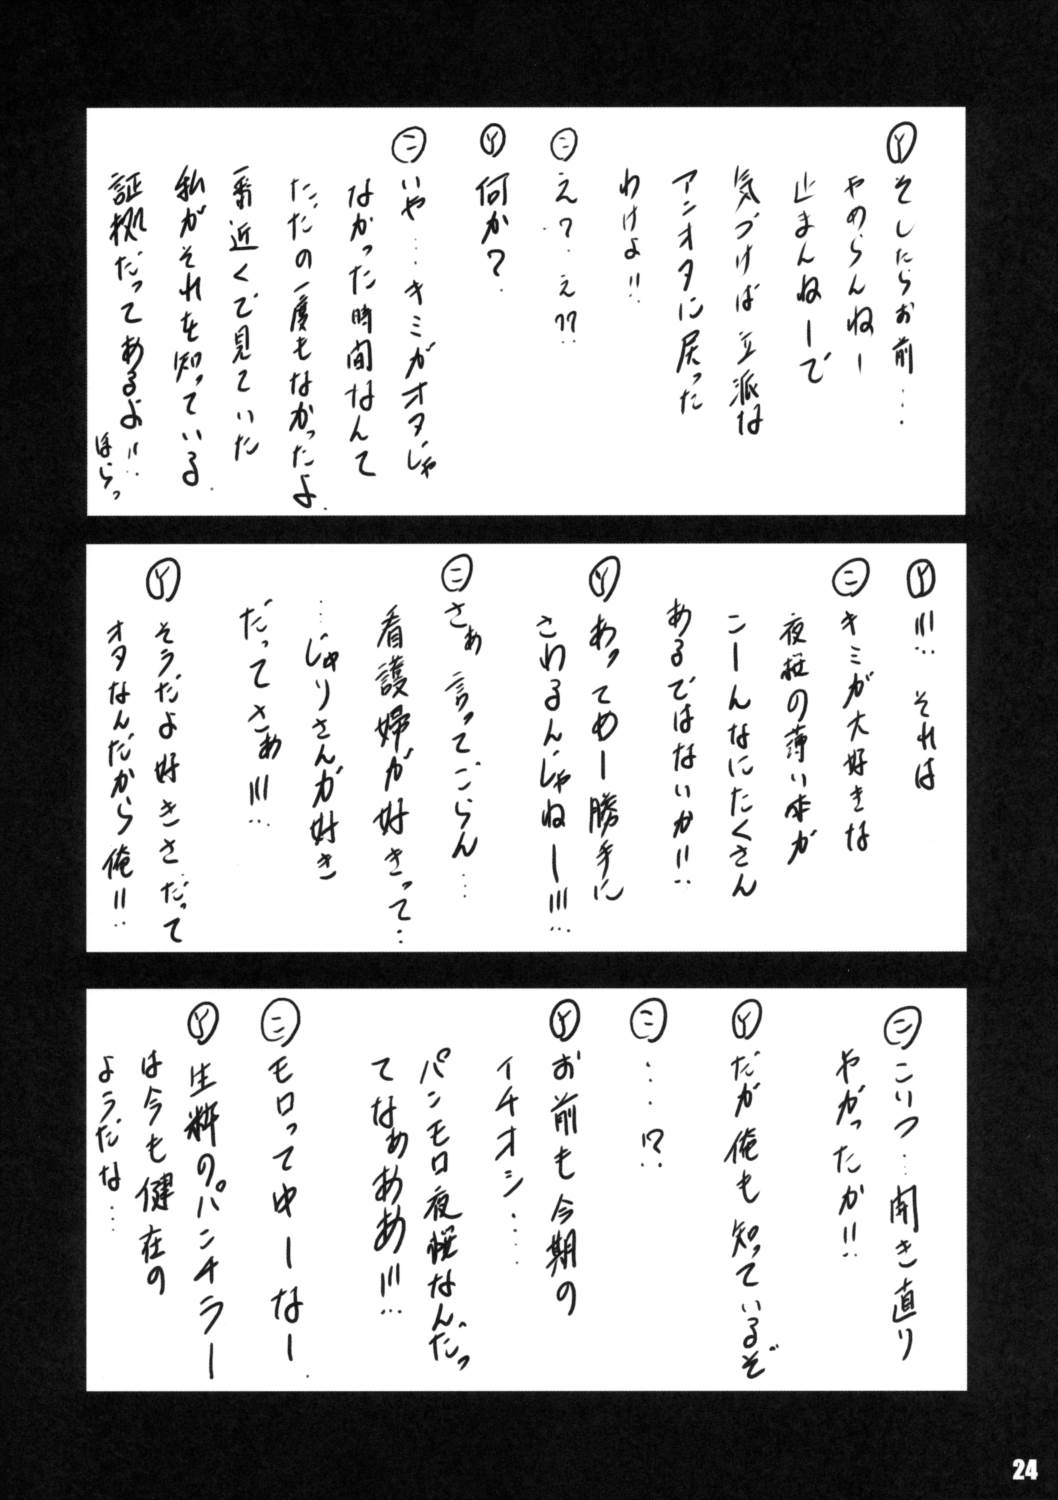 Ⓨそしたらお前…
やめらんねー
止まんねーで
気づけば立派な
アニオタに戻った
わけよ!!
㊁え?え??
Ⓨ何か?
㊁いや…キミがオタじゃ
なかった時間なんて
ただの一度もなかったよ
一番近くで見ていた
私がそれを知っている
証拠だってあるよ!!
ほらっ
Ⓨ!!!それは
㊁キミが大好きな
夜桜の薄い本が
こーんなにたくさん
あるではないか!!
Ⓨあってめー勝手に
さわるんじゃねー!!!
㊁さぁ言ってごらん…
看護婦が好きって…
…じゅりさんが好き
だってさぁ!!!
Ⓨそうだよ好きさだって
オタなんだから俺!!
㊁こいつ…開き直り
やがったか!!
Ⓨだが俺も知っているぞ
㊁…!?
Ⓨお前も今期の
イチオシ…
パンモロ夜桜なんだっ
てなぁああ!!!
㊁モロってゆーなー
Ⓨ生粋のパンチラー
は今も健在の
ようだな…
24